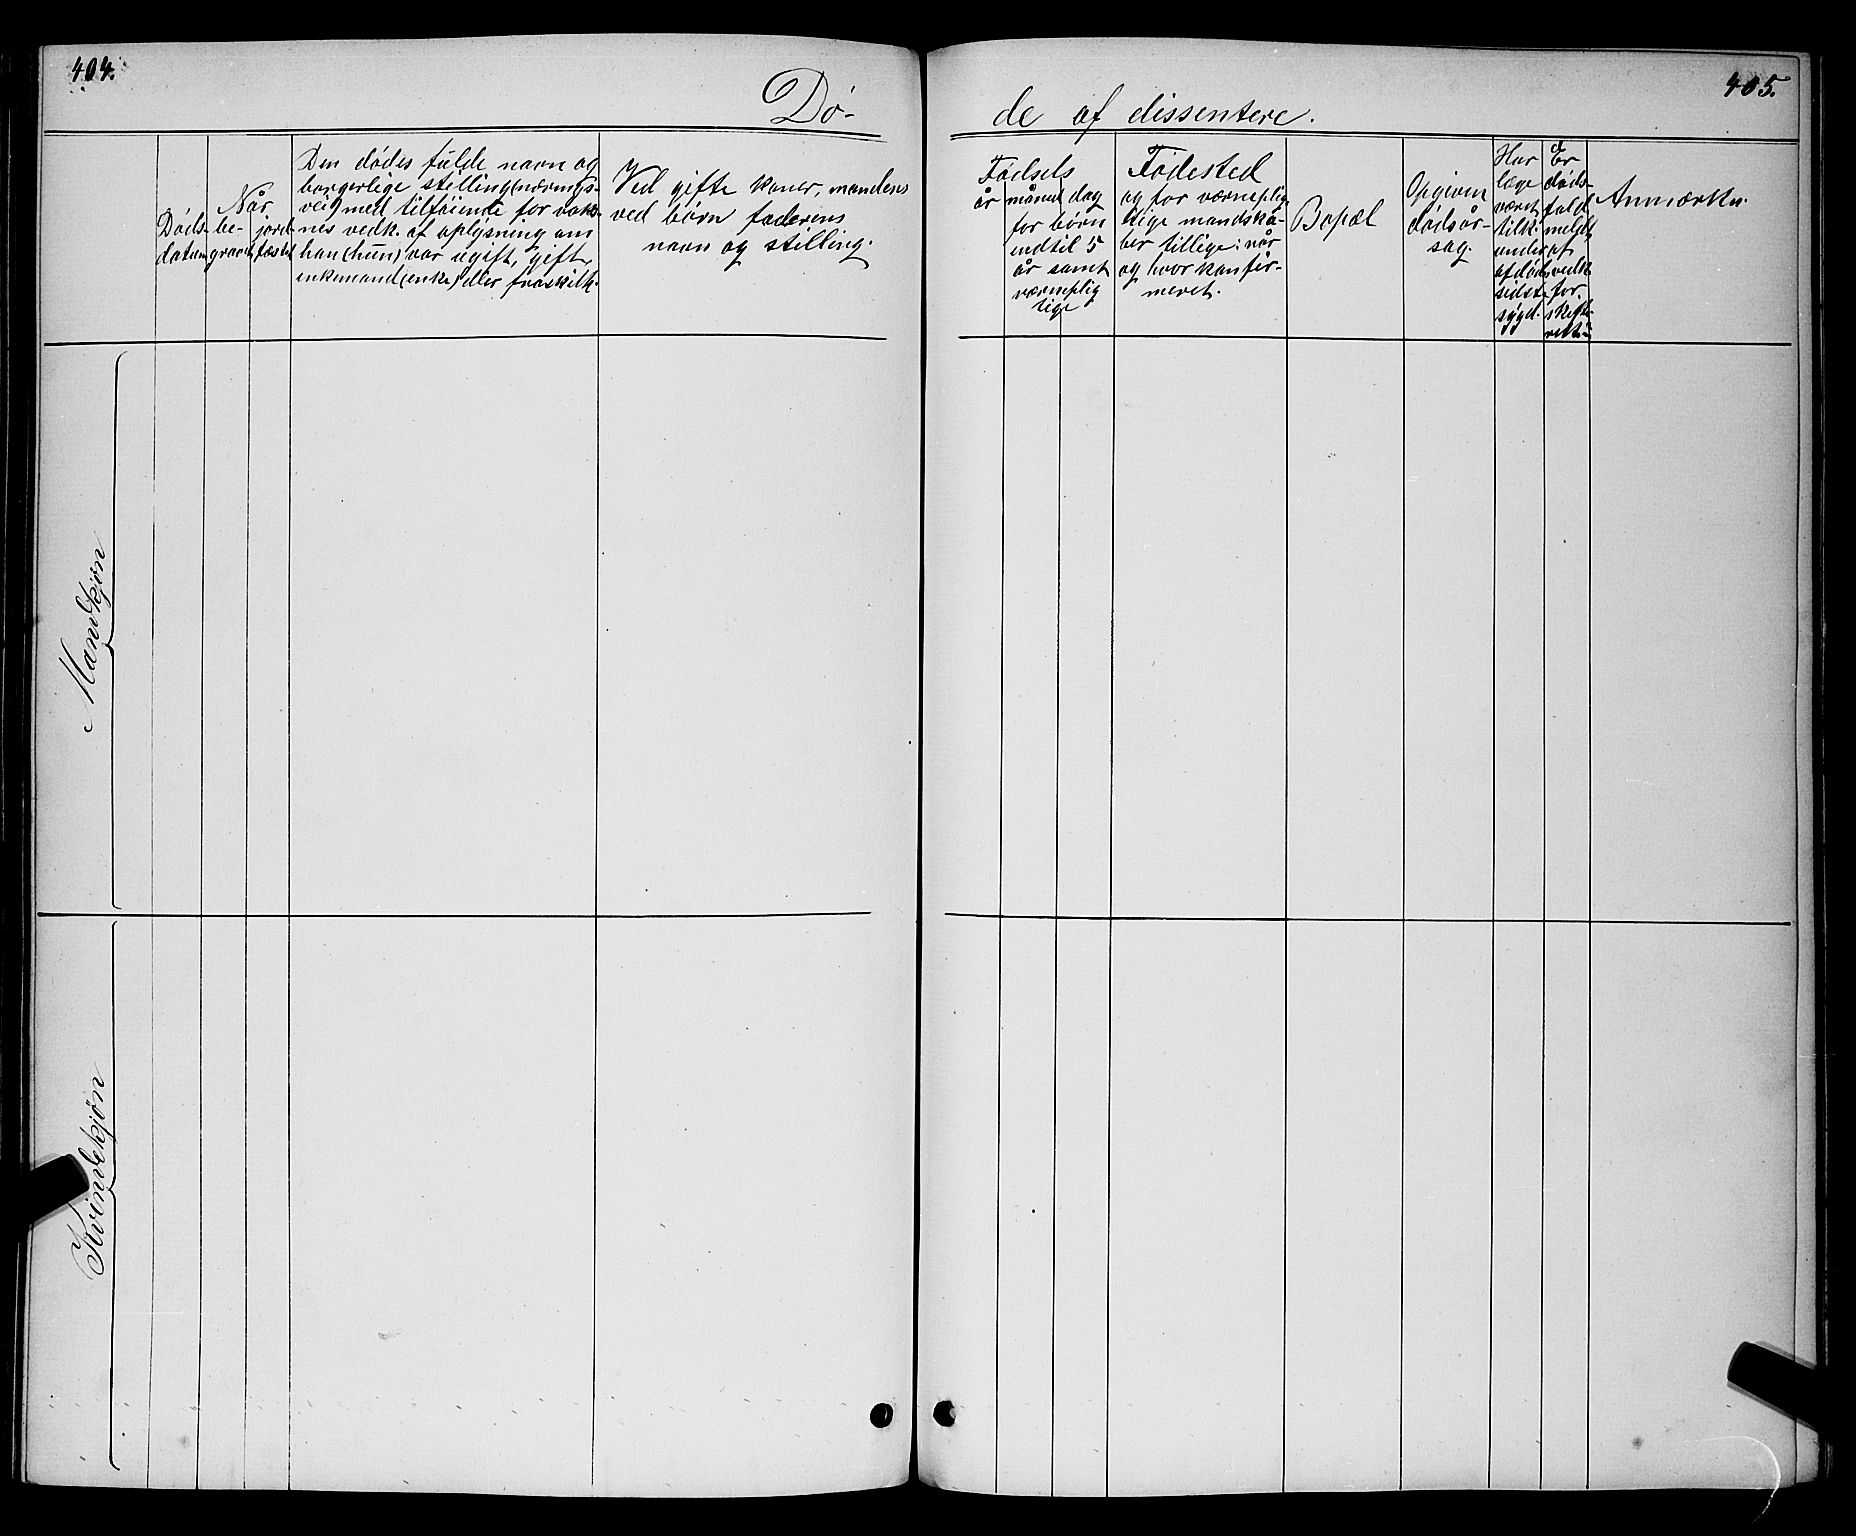 404.
Dø-
Døds-
datum
Når
be-
gravet
jord-
fæstet
Den dødes fulde navn og
borgerlige stilling (nærings-
vei) med tilføiende for voks-
nes vedk. af oplysning om
han (hun) var ugift, gift,
enkemand (enke) eller fraskilt.
Ved gifte koner, mandens
ved børn faderens
navn og stilling.
Mandkjøn
Kvindekjøn
405.
de af dissentere.
Fødsels
år
måned dag
for børn
indtil 5
år samt
værneplig
tige
Fødested
og for værneplig
tige mandska-
ber tillige: når
og hvor konfir-
meret.
Bopæl
Opgiven
dødsår-
sag.
Har
læge
været
tilk.
under
afdøde
sidste
sygd.
Er
døds-
fald
meldt
af
vedk
for
skifte-
rett.
Anmærkn.